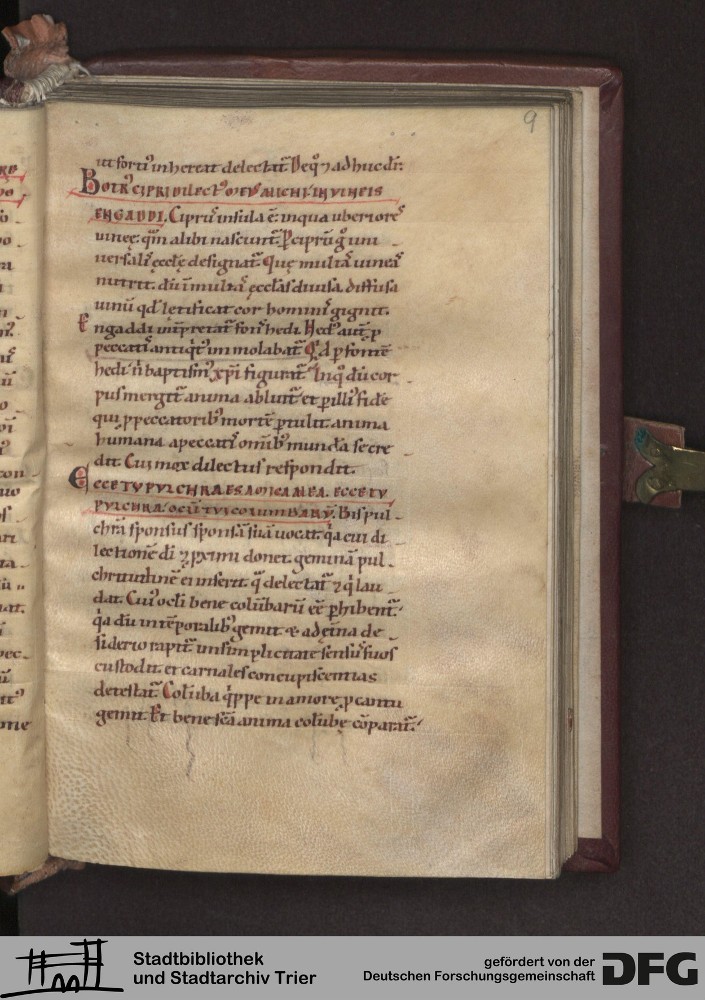 9
ut forti' inhereat delectat'. Deq' ⁊ adhuc dr̄:
BOTR' CIPRI DILECT' MEVS MICHI IN VINEIS
ENGADDI. Cipru' insula ē. in qua uberiores
uineę. qm̄ alibi nascunt'. P cipru' g̊ uni-
uersalis ęccle designat'. Quę multas uineas
nutrit. dū in multas ęccl'as diuisa. diffusa
uinū qd' letificat cor hominis gignit.
Engaddi int'pretat' fons hedi. Hed' aut' p
peccatis antiq't' immolabat'. Q'd p fontē
hedi n' baptism' xp̄i figurat'. In q° dū cor-
pus mergit' anima abluit' et p illi' fidē
qui p peccatorib' mortē ptulit anima
humana a peccatis omib' munda se cre
dit. Cui mox dilectus respondit.
ECCE TV PVLCHRA ES AMICA MEA. ECCE TV
PVLCHRA. OCL'I TVI COLVMBARV'. Bis pul-
chrā sponsus sponsā suā uocat. q'a cui di
lectionē di ⁊ pximi donet. geminā pul-
chritudinē ei inserit. q° delectat' ⁊ q' lau
dat. Cui' oc'li bene colūbarū eē phibent'.
q'a dū in tēporalib' gemit & ad ęt'na de-
siderio rapit'. in simplicitate sensus suos
custodit. et carnales concupiscentias
detestat'. Colūba q'ppe in amore. p cantu
gemit. Et bene sc̄a anima colūbę cōparat'.
Stadtbibliothek
und Stadtarchiv Trier
gefördert von der
Deutschen Forschungsgemeinschaft
DFG